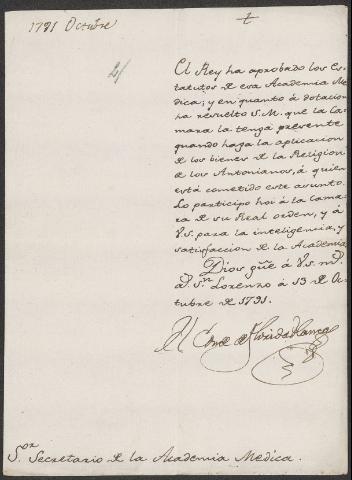 1791 Octubre
El Rey ha aprobado los Es-
tatutos de esa Academia Me-
dica; y en quanto á dotacion
ha resuelto S. M. que la Ca-
mara la tenga presente
quando haga la aplicacion
de los bienes de la Religion
de los Antonianos, á quien
está cometido este asunto.
Lo participo hoi á la Cama-
ra de su Real orden, y á
V.S. para la inteligencia, y
satisfaccion de la Academia.
Dios gũe á V.S. m.s
a.s S.n Lorenzo á 13 de Oc-
tubre de 1791.
El Conde de Floridablanca
S.or Secretario de la Academia Medica.